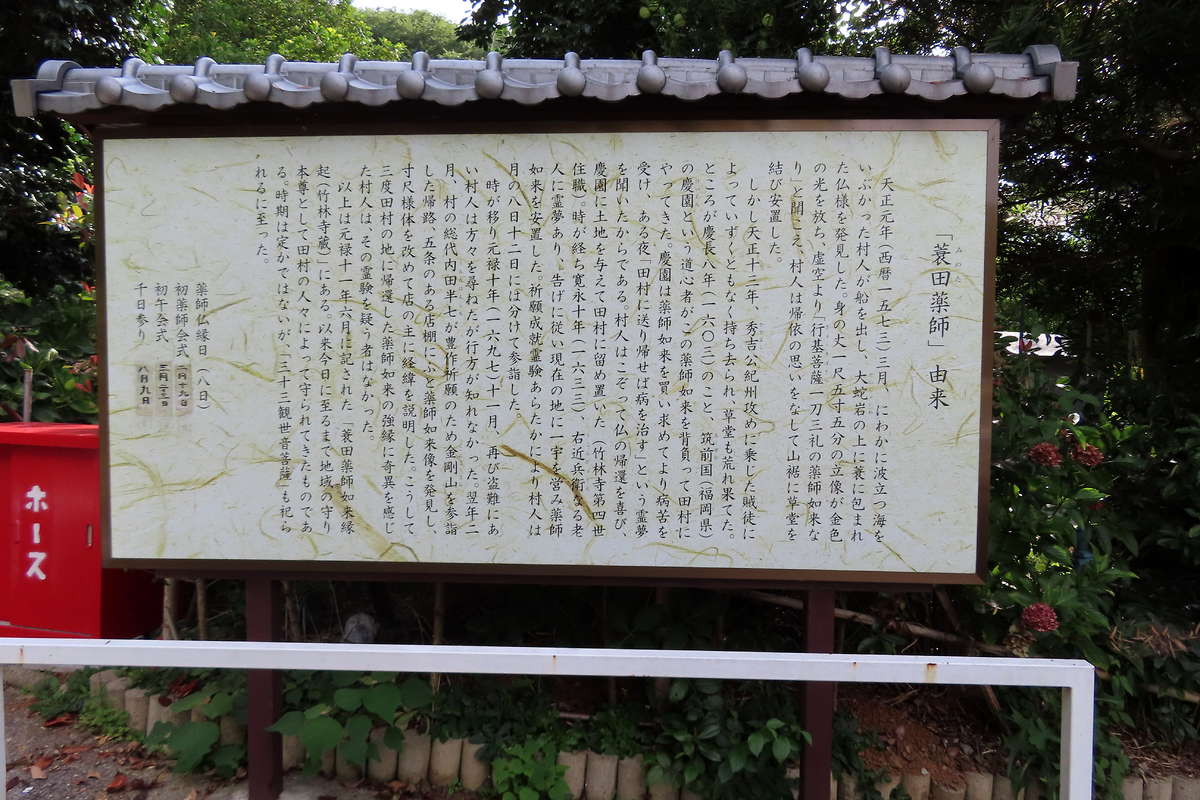 「蓑田薬師」由来
みのだ
天正元年(西暦一五七三)三月、にわかに波立つ海を
いぶかった村人が船を出し、大蛇岩の上に蓑に包まれ
た仏様を発見した。身の丈一尺五寸五分の立像が金色
の光を放ち、虚空より「行基菩薩一刀三礼の薬師如来な
り」と聞こえ、村人は帰依の思いをなして山裾に草堂を
結び安置した。
しかし天正十三年、秀吉公紀州攻めに乗じた賊徒に
よっていずくともなく持ち去られ、草堂も荒れ果てた。
ところが慶長八年(一六〇三)のこと、筑前国(福岡県)
の慶園という道心者がこの薬師如来を背負って田村に
やってきた。慶園は薬師如来を買い求めてより病苦を
受け、ある夜「田村に送り帰せば病を治す」という霊夢
を聞いたからである。村人はこぞって仏の帰還を喜び、
慶園に土地を与えて田村に留め置いた(竹林寺第四世
住職)。時が経ち寛永十年(一六三三)、右近兵衛なる老
人に霊夢あり、告げに従い現在の地に一宇を営み薬師
如来を安置した。祈願成就霊験あらたかにより村人は
月の八日十二日には分けて参詣した。
時が移り元禄十年(一六九七)十一月、再び盗難にあ
い村人は方々を尋ねたが行方が知れなかった。翌年二
月、村の総代内田半七が豊作祈願のため金剛山を参詣
した帰路、五条のある店棚にふと薬師如来像を発見し、
寸尺様体を改めて店の主に経緯を説明した。こうして
三度田村の地に帰還した薬師如来の強縁に奇異を感じ
た村人は、その霊験を疑う者はなかった。
以上は元禄十一年六月に記された「蓑田薬師如来縁
起(竹林寺蔵)」にある。以来今日に至るまで地域の守り
本尊として田村の人々によって守られてきたものであ
る。時期は定かではないが、「三十三観世音菩薩」も祀ら
れるに至った。
薬師仏縁日(八日)
初薬師会式 一月十九日
初午会式 三月二十三日
千日参り 八月九日
ホース